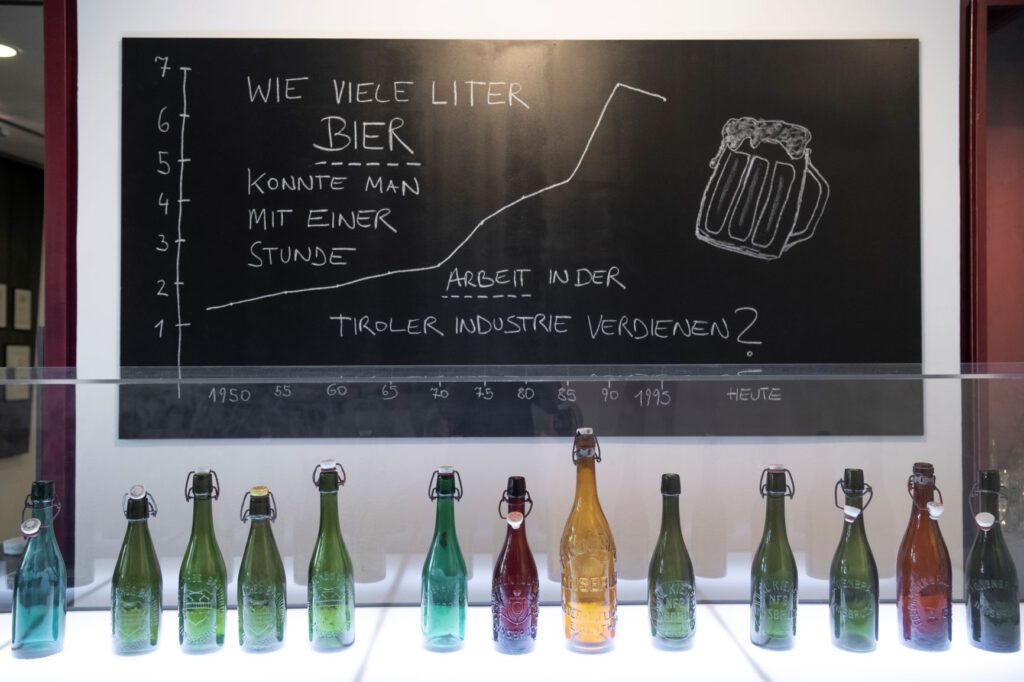 WIE VIELE LITER
BIER
KONNTE MAN
MIT EINER
STUNDE
ARBEIT IN DER
TIROLER INDUSTRIE VERDIENEN?
7
6
5
4
3
2
1
1950 55 60 65 70 75 80 85 90 1995 HEUTE